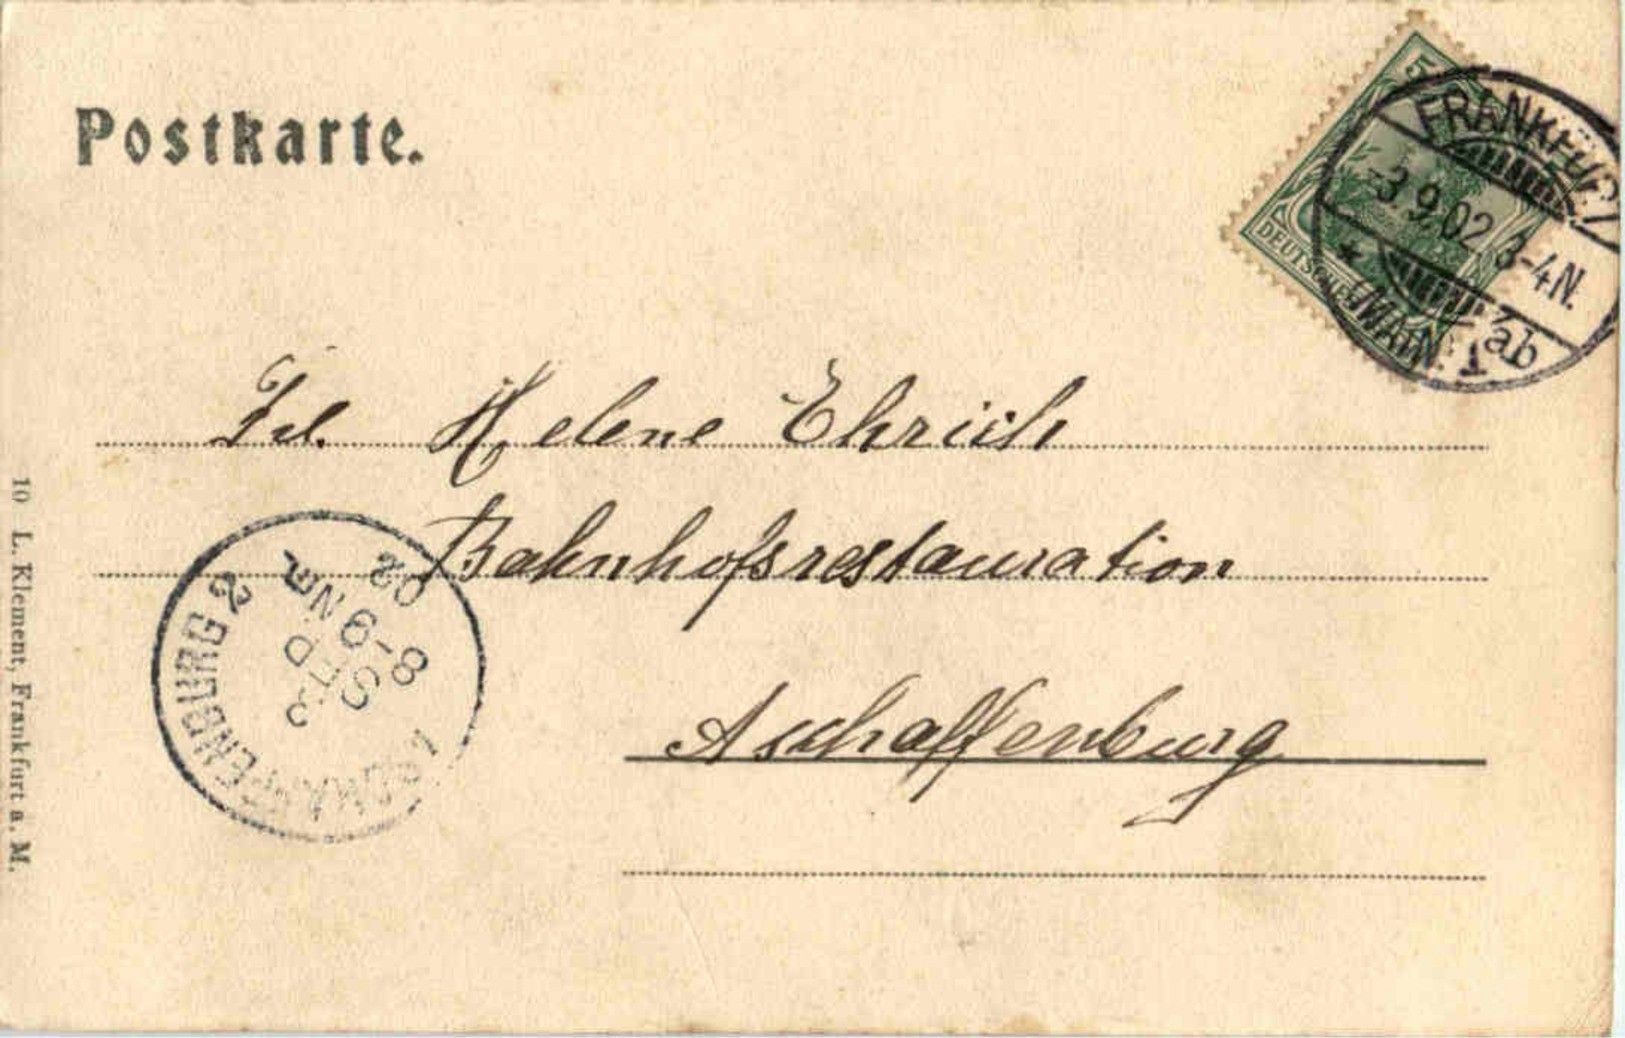 Postkarte.
5
DEUTSCHES
FRANKFURT
-3.9.02.3-4N.
* (MAIN) 1 ab
Frl. Helene Ehrich
Bahnhofsrestauration
Aschaffenburg
ASCHAFFENBURG 2
3
SEP
8-9 NM
02
10 L. Klement, Frankfurt a. M.